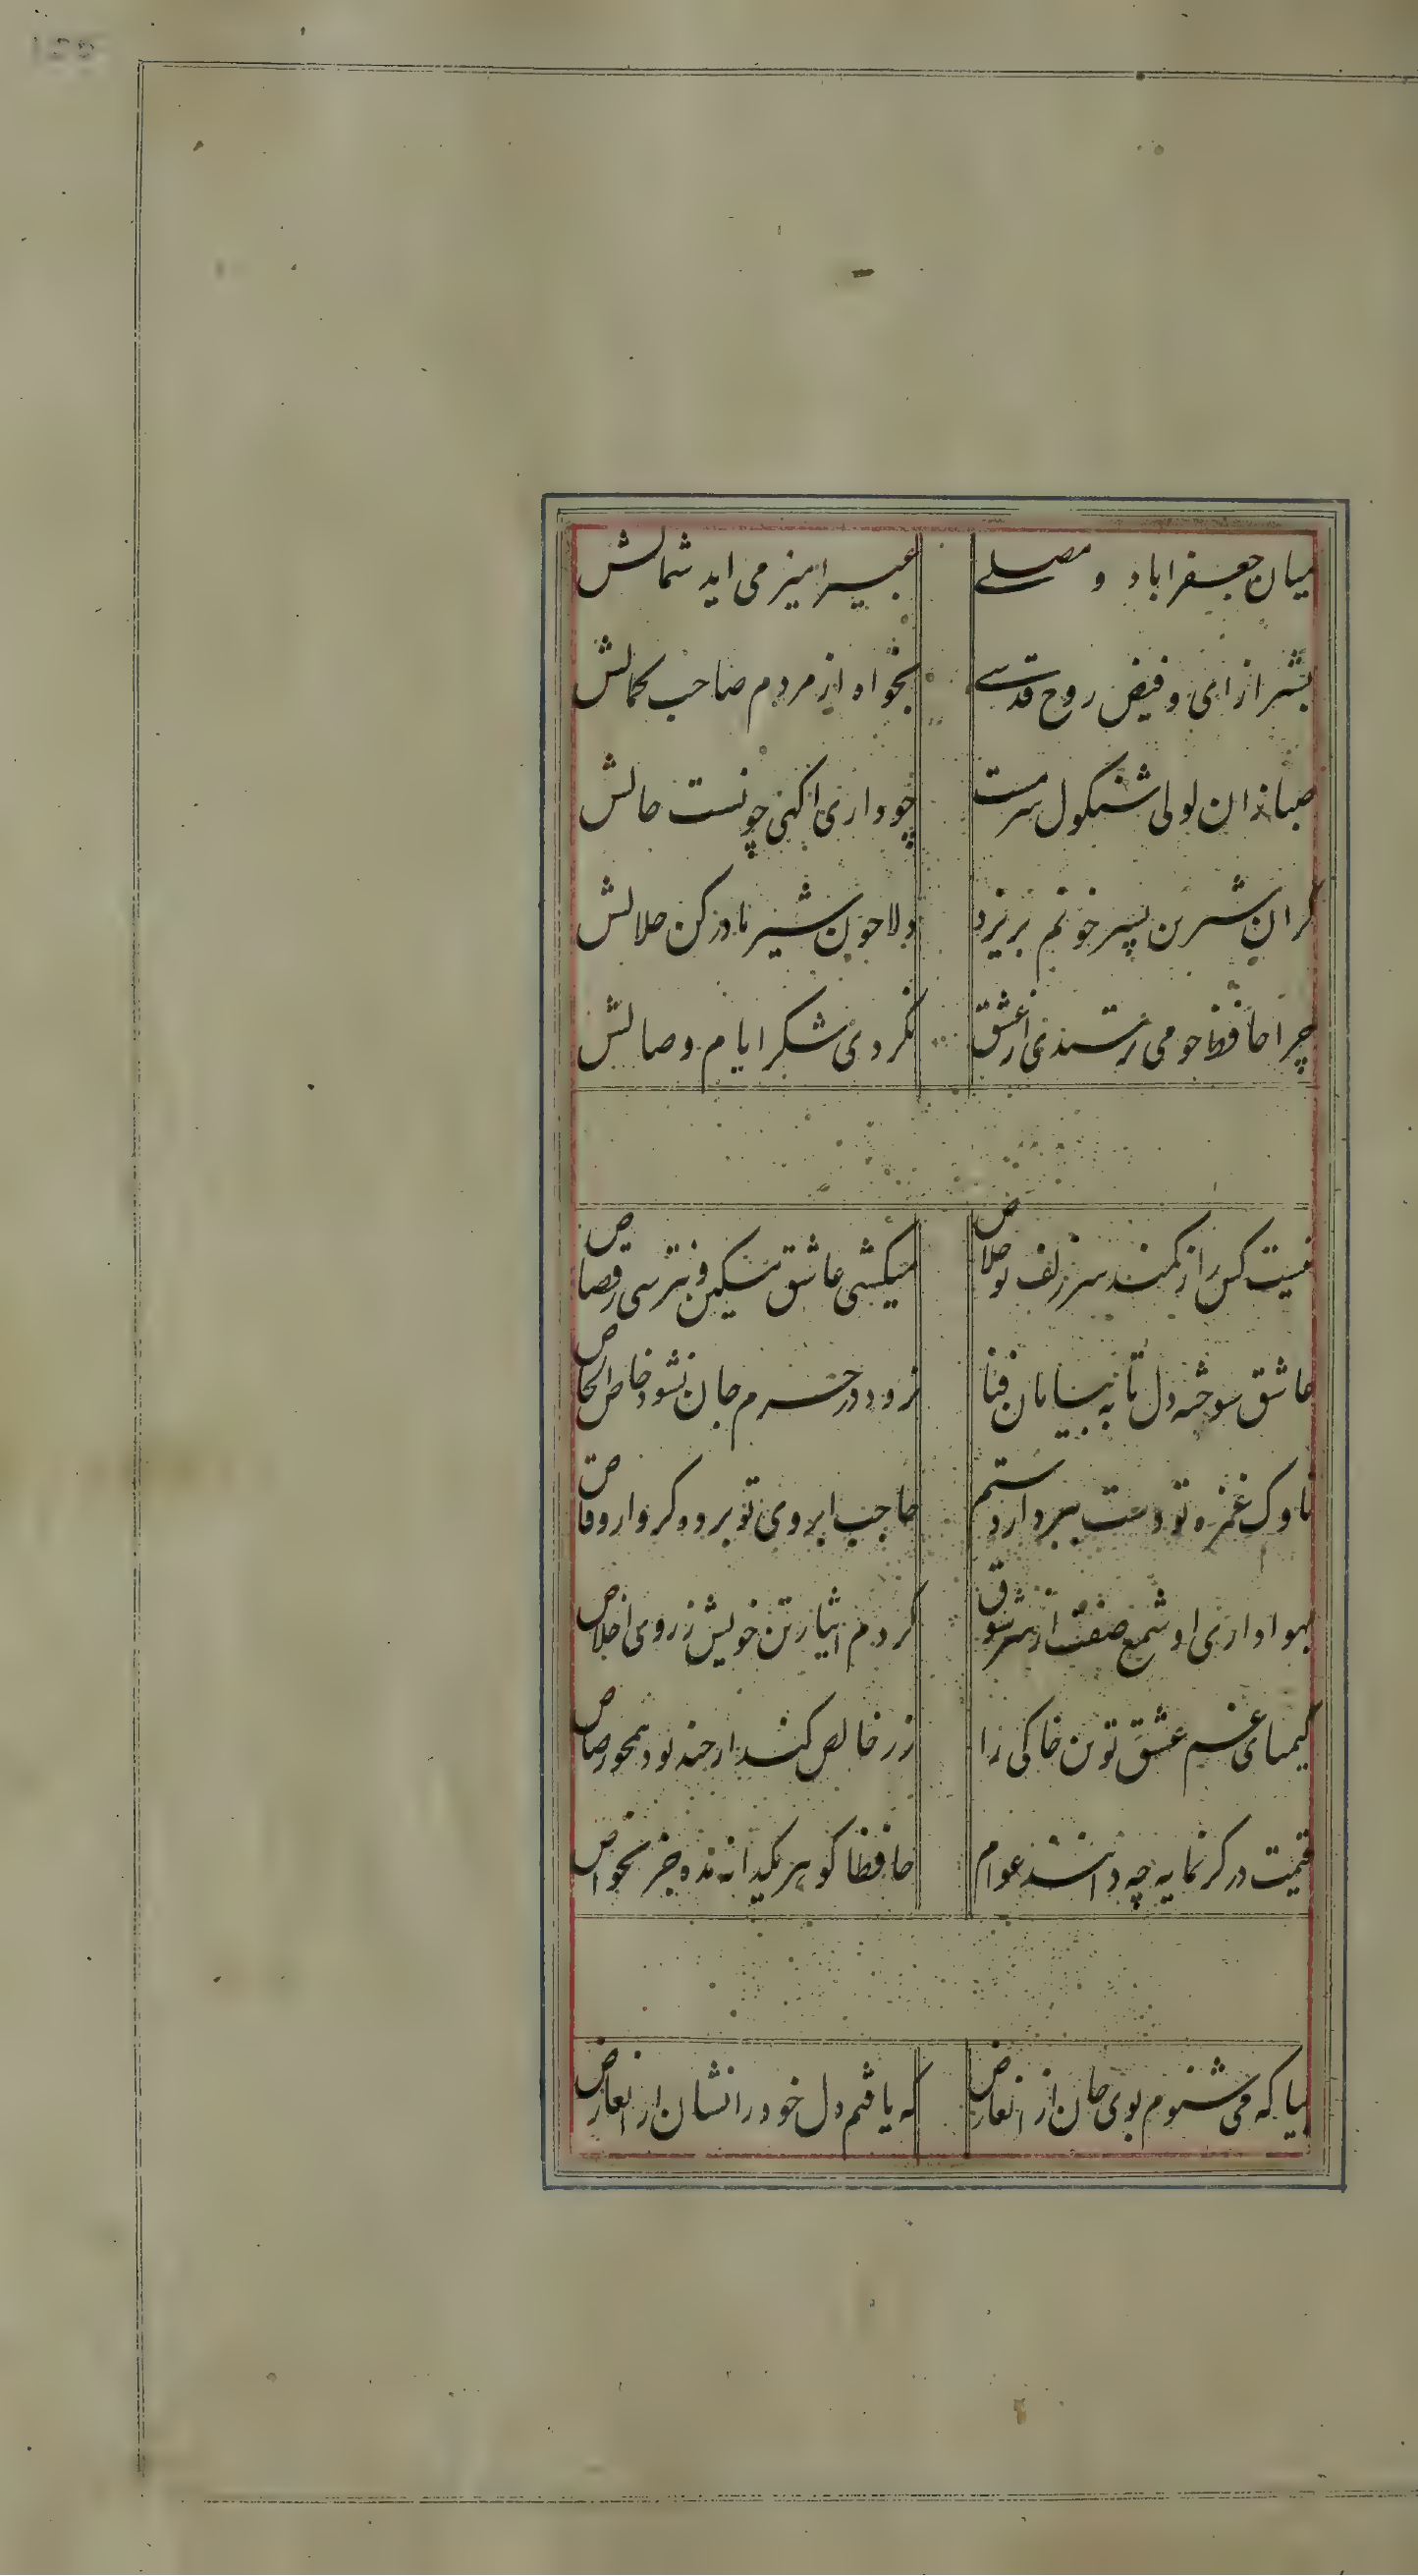 میان جعفراباد و مصلے عبیرامیز می اید شمالش
بشیراز ای و فیض روح قدسے بخواه از مردم صاحب کمالش
صبا زان لولی شنکول سرمست چو داری اکهی چونست حالش
کر ان شیرین پسر خونم بریزد دلا چون شیر مادر کن حلالش
چرا حافظ چو می ترسیدی از عشق نکردی شکر ایام وصالش
نیست کس را ز کمند سر زلف تو خلاص میکشی عاشق مسکین و نترسی ز قصاص
عاشق سوخته دل تا به بیابان فنا نرود در حرم جان نشود خاص الخاص
ناوک غمزه تو دست ببرد از رستم حاجب ابروی تو برده کرو از وقاص
بهواداری او شمع صفت از سر شوق کردم ایثار تن خویش ز روی اخلاص
کیمیای غم عشق تو تن خاکی را زر خالص کند ار چند بود همچو رصاص
قیمت در کرنمایه چه دانند عوام حافظا کوهر یکدانه مده جز بخواص
بیا که می شنوم بوی جان از انعارض که یافتم دل خود را نشان از انعارض